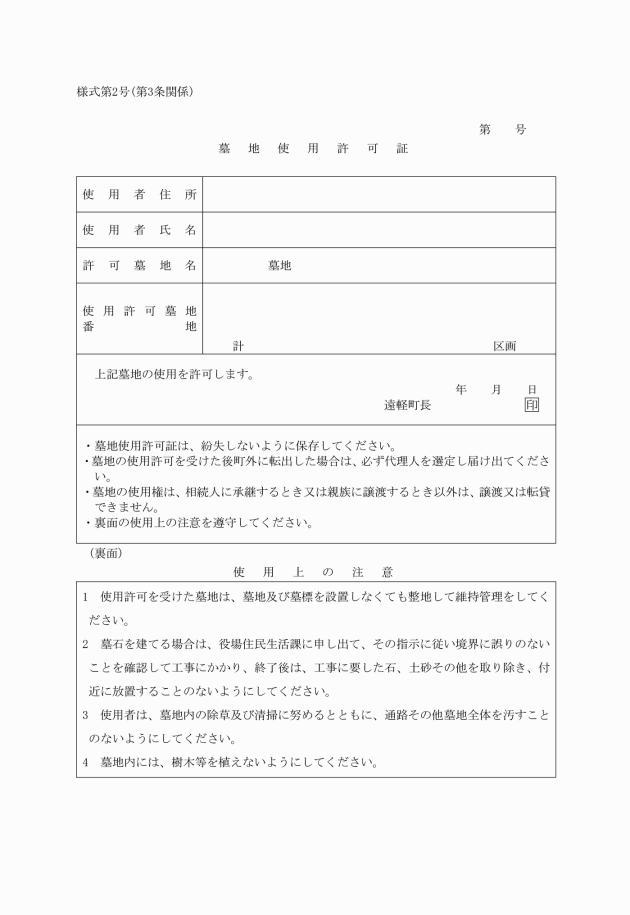 様式第2号(第3条関係)
第　　号
墓　地　使　用　許　可　証
使用者住所
使用者氏名
許可墓地名　　　墓地
使用許可墓地
番地
計　　　区画
上記墓地の使用を許可します。
年　　月　　日
遠軽町長　　　印
・墓地使用許可証は、紛失しないように保存してください。
・墓地の使用許可を受けた後町外に転出した場合は、必ず代理人を選定し届け出てくださ
い。
・墓地の使用権は、相続人に承継するとき又は親族に譲渡するとき以外は、譲渡又は転貸
できません。
・裏面の使用上の注意を遵守してください。
(裏面)
使　用　上　の　注　意
1　使用許可を受けた墓地は、墓地及び墓標を設置しなくても整地して維持管理をしてく
ださい。
2　墓石を建てる場合は、役場住民生活課に申し出て、その指示に従い境界に誤りのない
ことを確認して工事にかかり、終了後は、工事に要した石、土砂その他を取り除き、付
近に放置することのないようにしてください。
3　使用者は、墓地内の除草及び清掃に努めるとともに、通路その他墓地全体を汚すこと
のないようにしてください。
4　墓地内には、樹木等を植えないようにしてください。